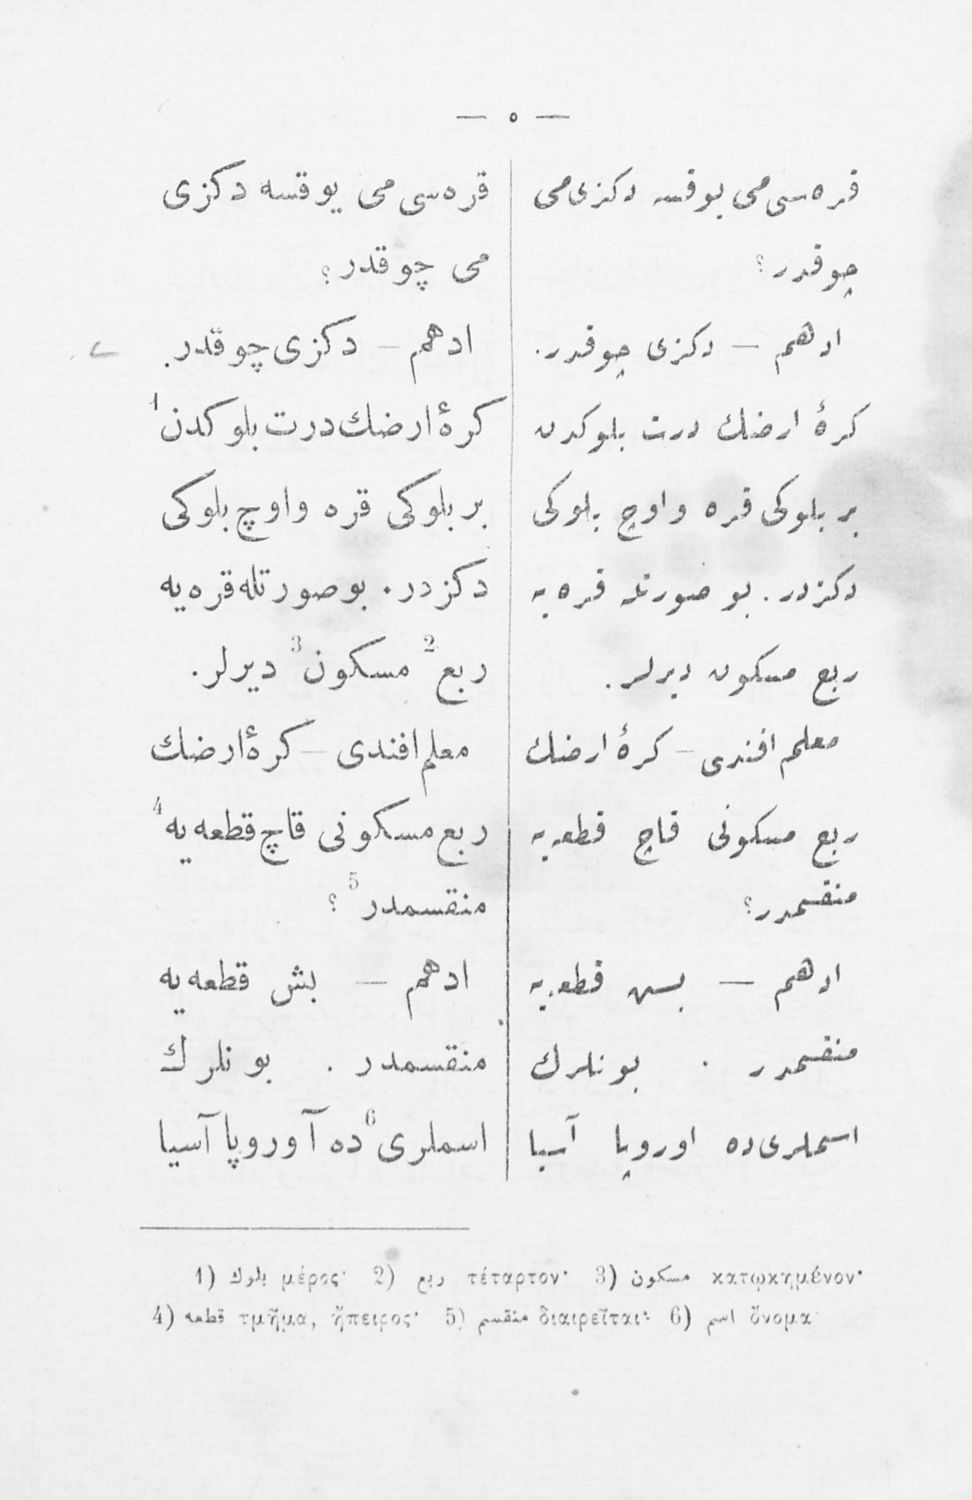 — ٥ —
قره‌سی می یوقسه دكزی می
چوقدر ؟
ادهم — دكزی چوقدر .
كرۀ ارضك درت بلوكدن
بر بلوكی قره و اوچ بلوكی
دكزدر . بو صورتله قره یه
ربع مسكون دیرلر .
معلم افندی — كرۀ ارضك
ربع مسكونی قاچ قطعه یه
منقسمدر ؟
ادهم — بش قطعه یه
منقسمدر . بونلرك
اسملری ده اوروپا آسیا
قره‌سی می یوقسه دكزی
می چوقدر ؟
ادهم — دكزی چوقدر .
كرۀ ارضك درت بلوكدن 1
بر بلوكی قره و اوچ بلوكی
دكزدر . بو صورتله قره یه
ربع 2 مسكون 3 دیرلر .
معلم افندی — كرۀ ارضك
ربع مسكونی قاچ قطعه یه 4
منقسمدر 5 ؟
ادهم — بش قطعه یه
منقسمدر . بونلرك
اسملری 6 ده آوروپا آسیا
1) بلوك μέρος· 2) ربع τέταρτον· 3) مسكون κατῳκημένον·
4) قطعه τμῆμα, ἤπειρος· 5) منقسم διαιρεῖται· 6) اسم ὄνομα